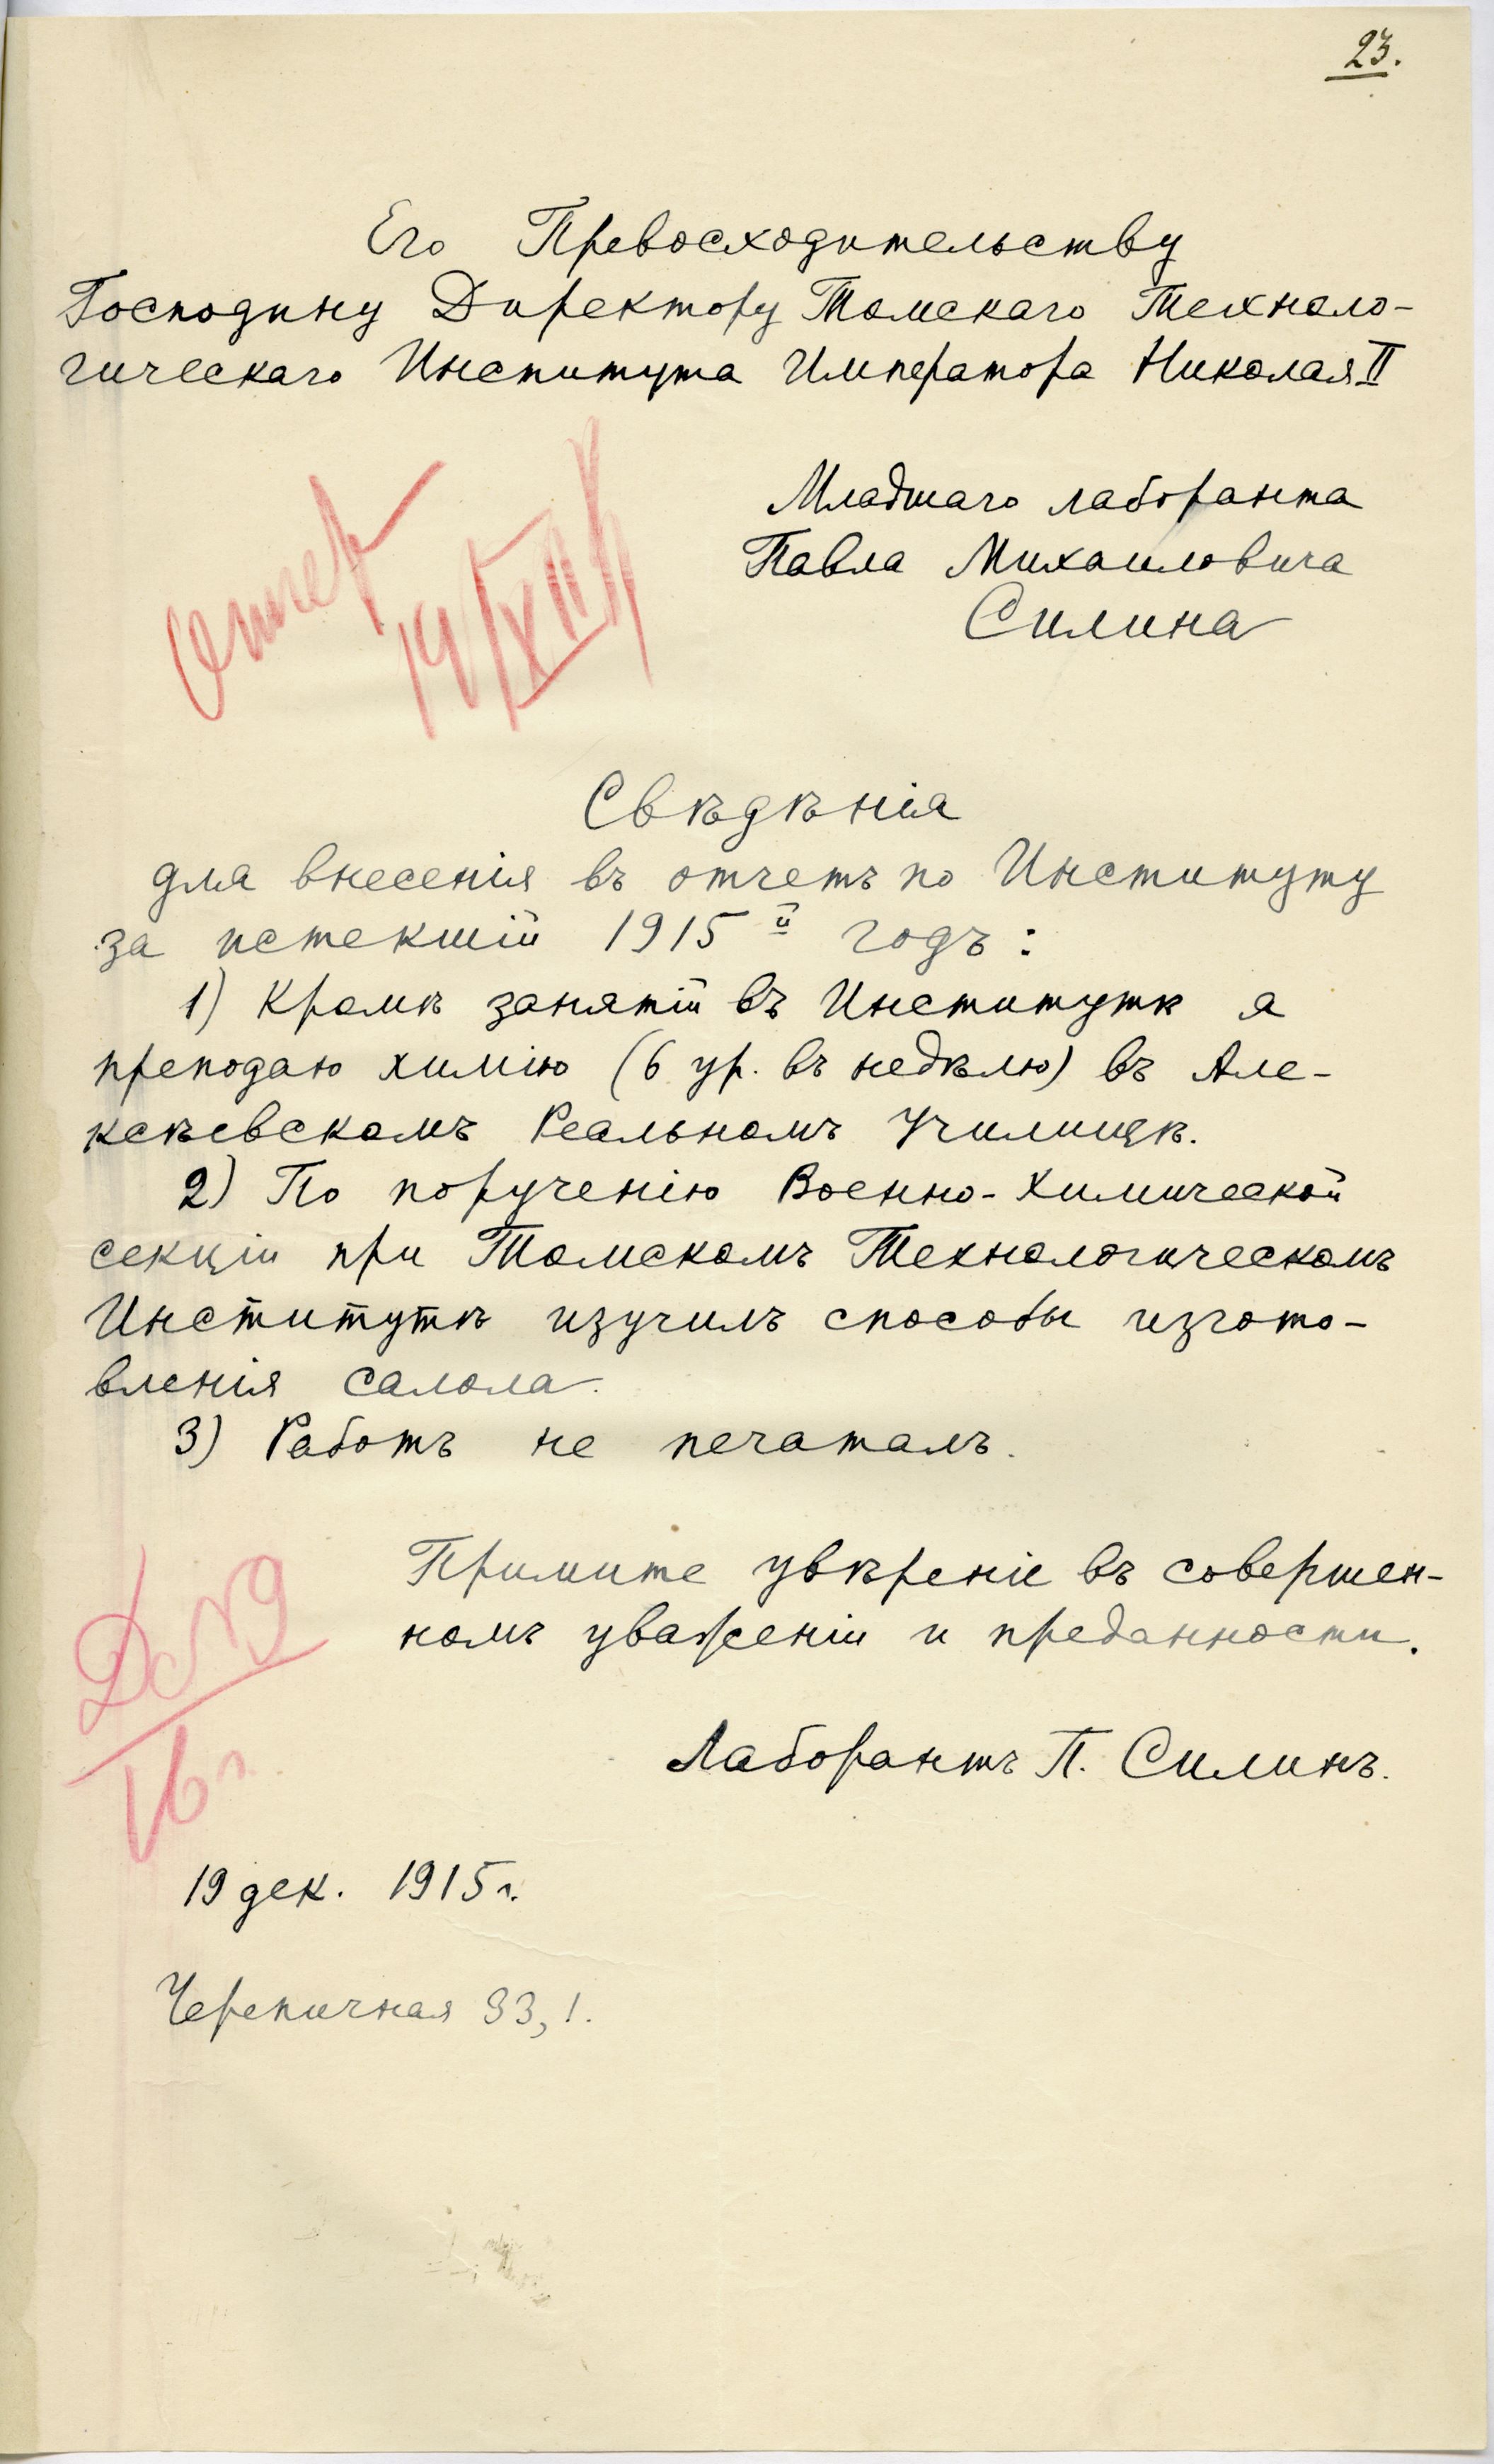 23.
Его Превосходительству
Господину Директору Томскаго Техноло-
гическаго Института Императора Николая II
Младшаго лаборанта
Павла Михаиловича
Силина
Свѣдѣнія
для внесенія въ отчетъ по Институту
за истекшій 1915й годъ:
1) Кромѣ занятій въ Институтѣ я
преподаю химію (6 ур. въ недѣлю) въ Але-
ксѣевскомъ Реальномъ Училищѣ.
2) По порученію Военно-Химической
секціи при Томскомъ Технологическомъ
Институтѣ изучилъ способы изгото-
вленія салола.
3) Работъ не печаталъ.
Примите увѣреніе въ совершен-
номъ уваженіи и преданности.
Лаборантъ П. Силинъ.
19 дек. 1915 г.
Черепичная 33, 1.